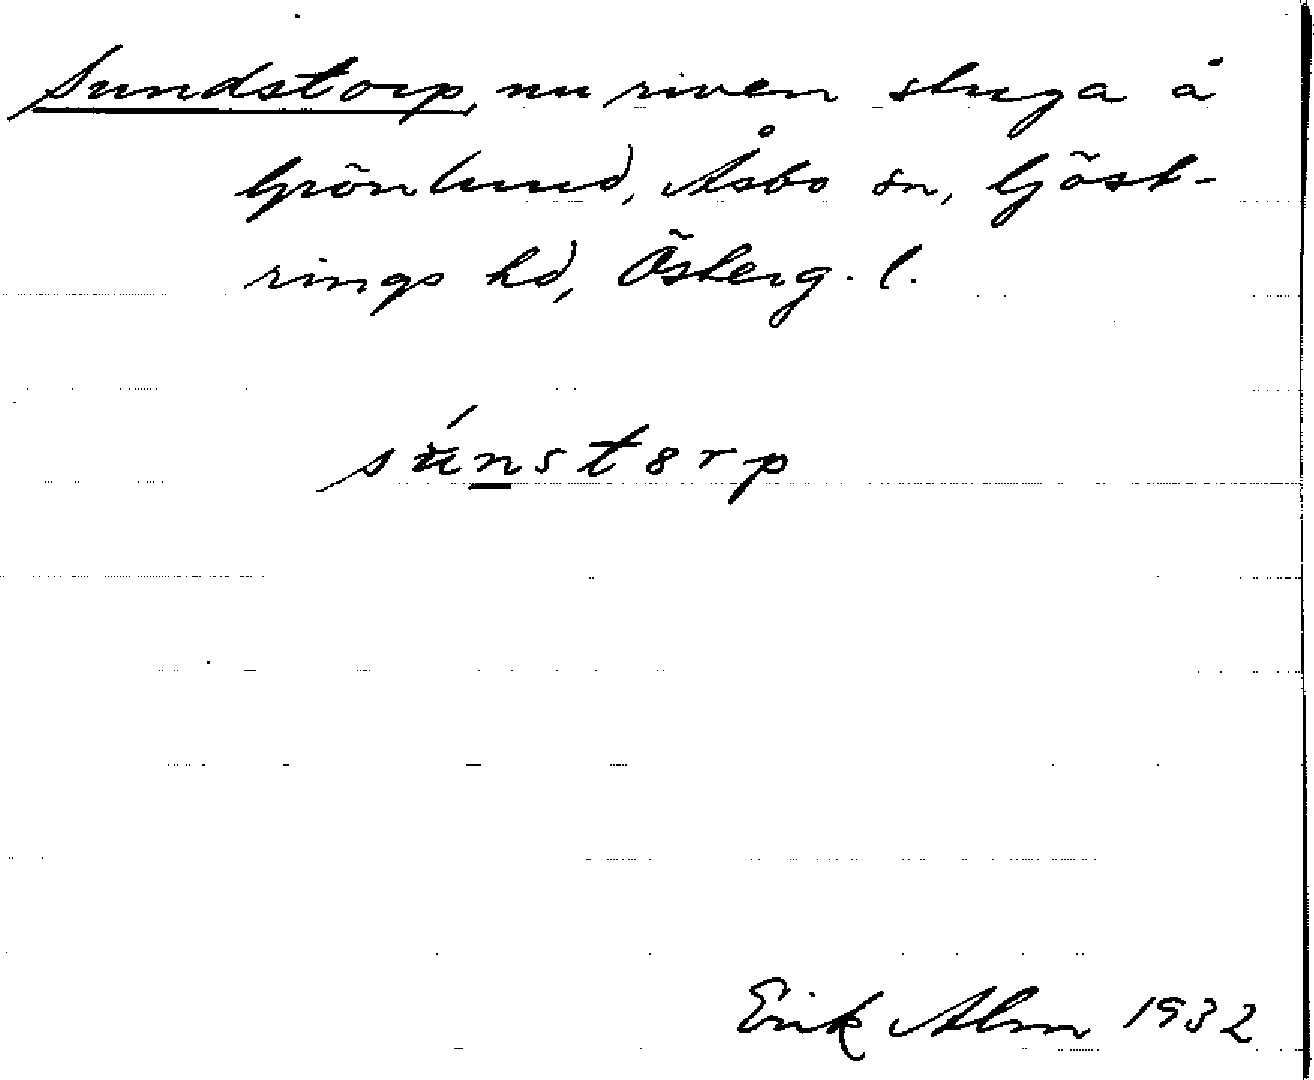 Sundstorp, nu riven stuga å
Grönlund, Åsbo sn, Göst-
rings hd, Österg. l.
sú̈nst8rp
Erik Alm 1932